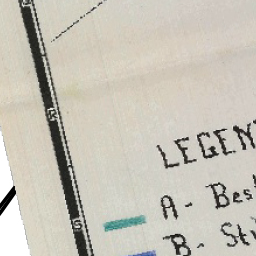 R
LEGEN
A - Bes
S
B - Sti